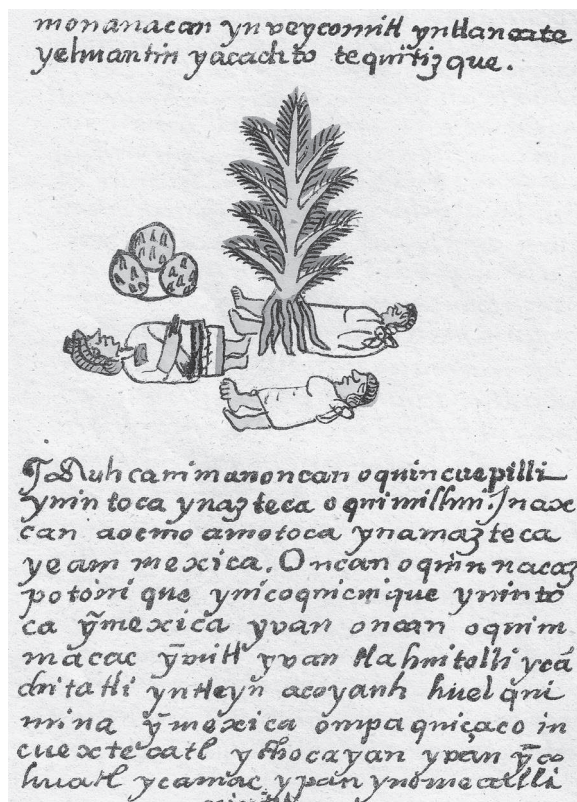 monanacan yn veycomitl yntlan cate
yehuantin yacachto tequitizque.
¶ Auh ca niman oncan oquincuepilli
ynin toca ynazteca oquimilhui. In ax
can aocmo amotoca ynamazteca
yeam mexica. Oncan oquin nacaz
potoni que ynic oquicuique ynin to
ca ỹ mexica yvan oncan oquim
macac ỹ mitl yvan tlahuitolli ycā
chitatli yntleyn acoyauh huel qui
mina ỹ mexica ompa quiçaco in
cuextecatl ychocayan ypan ỹ co
huatl ycamac. ypan ynomeacatlli